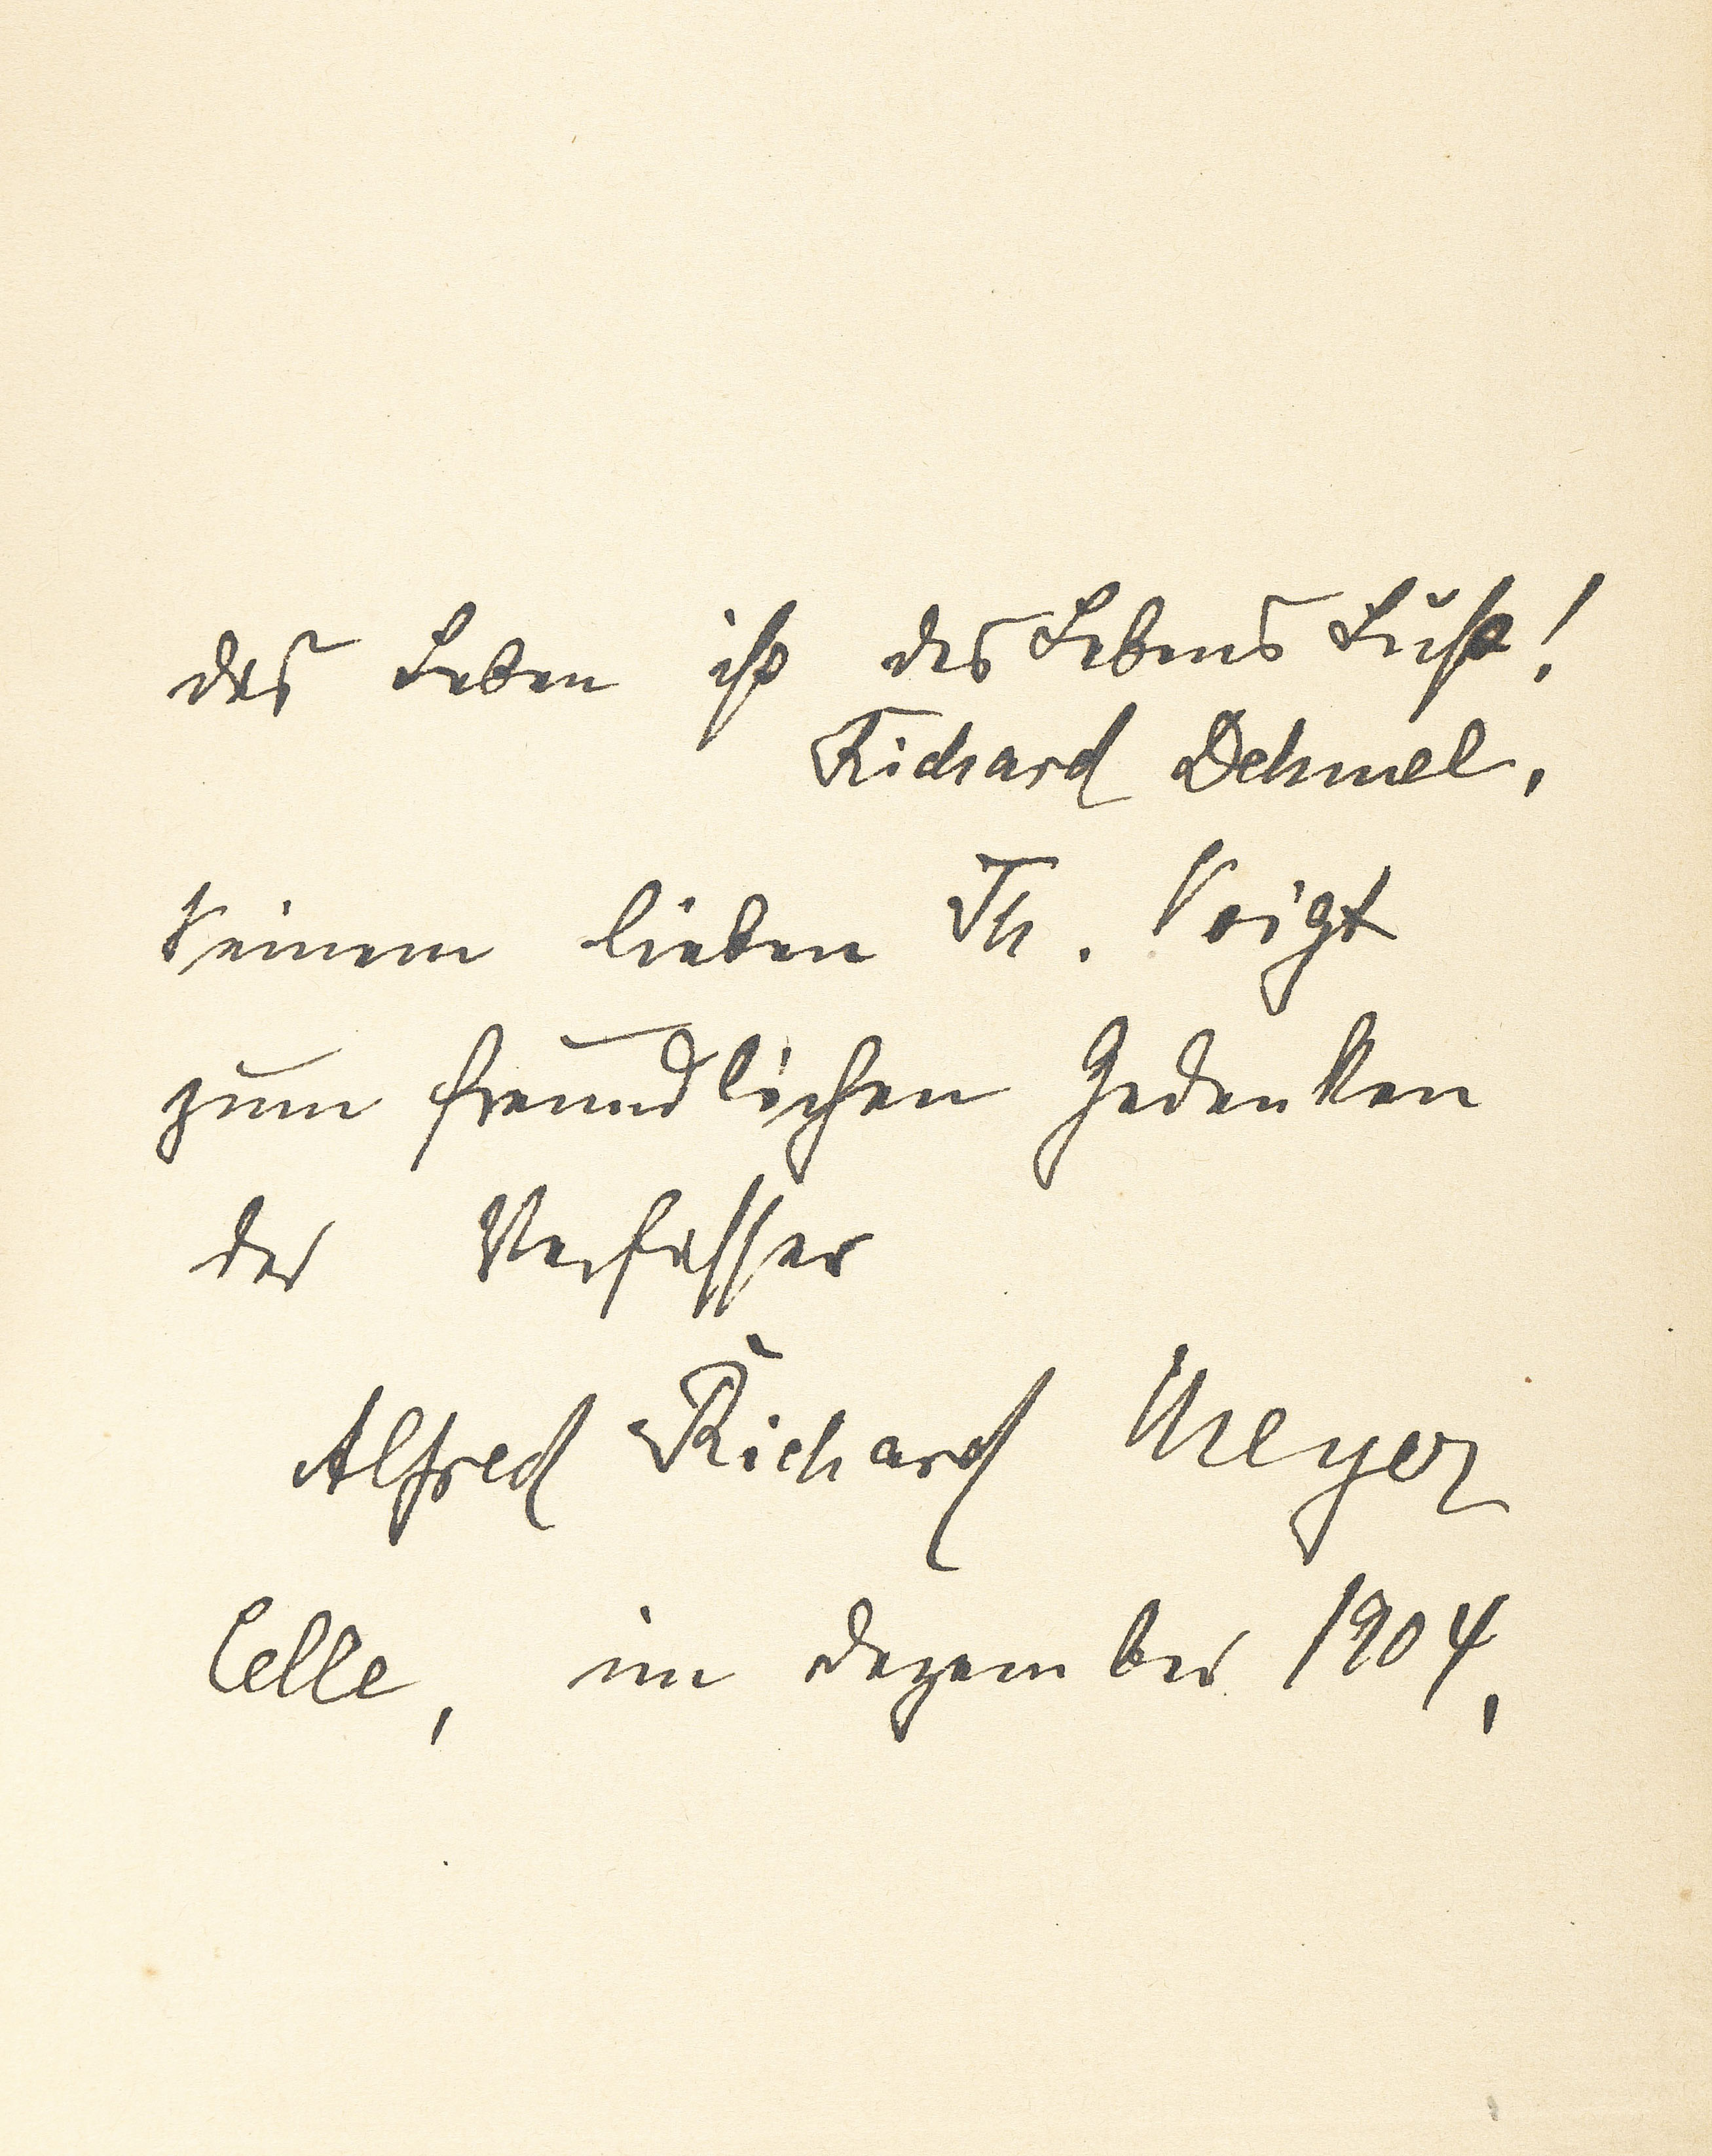 das Leben ist des Lebens Lust!
Richard Dehmel,
Seinem lieben Th. Voigt
zum freundlichen Gedenken
der Verfasser
Alfred Richard Meyer
Celle, im dezember 1904,